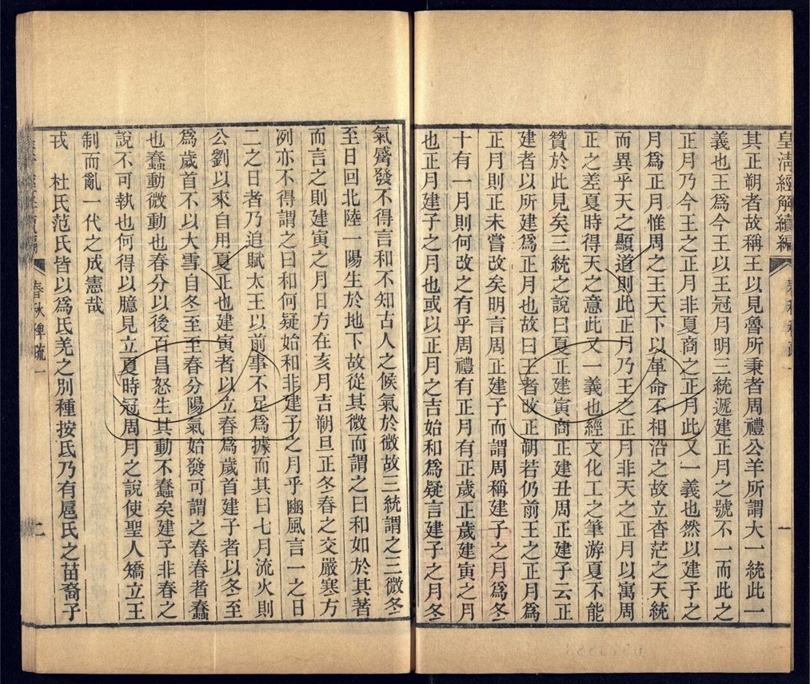 皇清經解續編
其正朔者故稱王以見魯所秉者周禮公羊所謂大一統此一
義也王爲今王以王冠月明三統遞建正月之號不一而此之
正月乃今王之正月非夏商之正月此又一義也然以建子之
月爲正月惟周之王天下以革命不相沿之故立杳茫之天統
而異乎天之顯道則此正月乃王之正月非天之正月以寓周
正之差夏時得天之意此又一義也經文化工之筆游夏不能
贊於此見矣三統之說曰夏正建寅商正建丑周正建子云正
建者以所建爲正月也故曰王者改正朔若仍前王之正月爲
正月則正未嘗改矣明言周正建子而謂周稱建子之月爲冬
十有一月則何改之有乎周禮有正月有正歲正歲建寅之月
也正月建子之月也或以正月之吉始和爲疑言建子之月冬
氣觱發不得言和不知古人之候氣於微故三統謂之三微冬
至日回北陸一陽生於地下故從其微而謂之曰和如於其著
而言之則建寅之月日方在亥月吉朔旦正冬春之交嚴寒方
冽亦不得謂之曰和何疑始和非建子之月乎豳風言一之日
二之日者乃追賦太王以前事不足爲據而其曰七月流火則
公劉以來自用夏正也建寅者以立春爲歲首建子者以冬至
爲歲首不以大雪自冬至至春分陽氣始發可謂之春春者蠢
也蠢動微動也春分以後百昌怒生其動不蠢矣建子非春之
說不可執也何得以臆見立夏時冠周月之說使聖人矯立王
制而亂一代之成憲哉
戎　杜氏范氏皆以爲氐羌之別種按氐乃有扈氏之苗裔子
春秋稗疏一
二